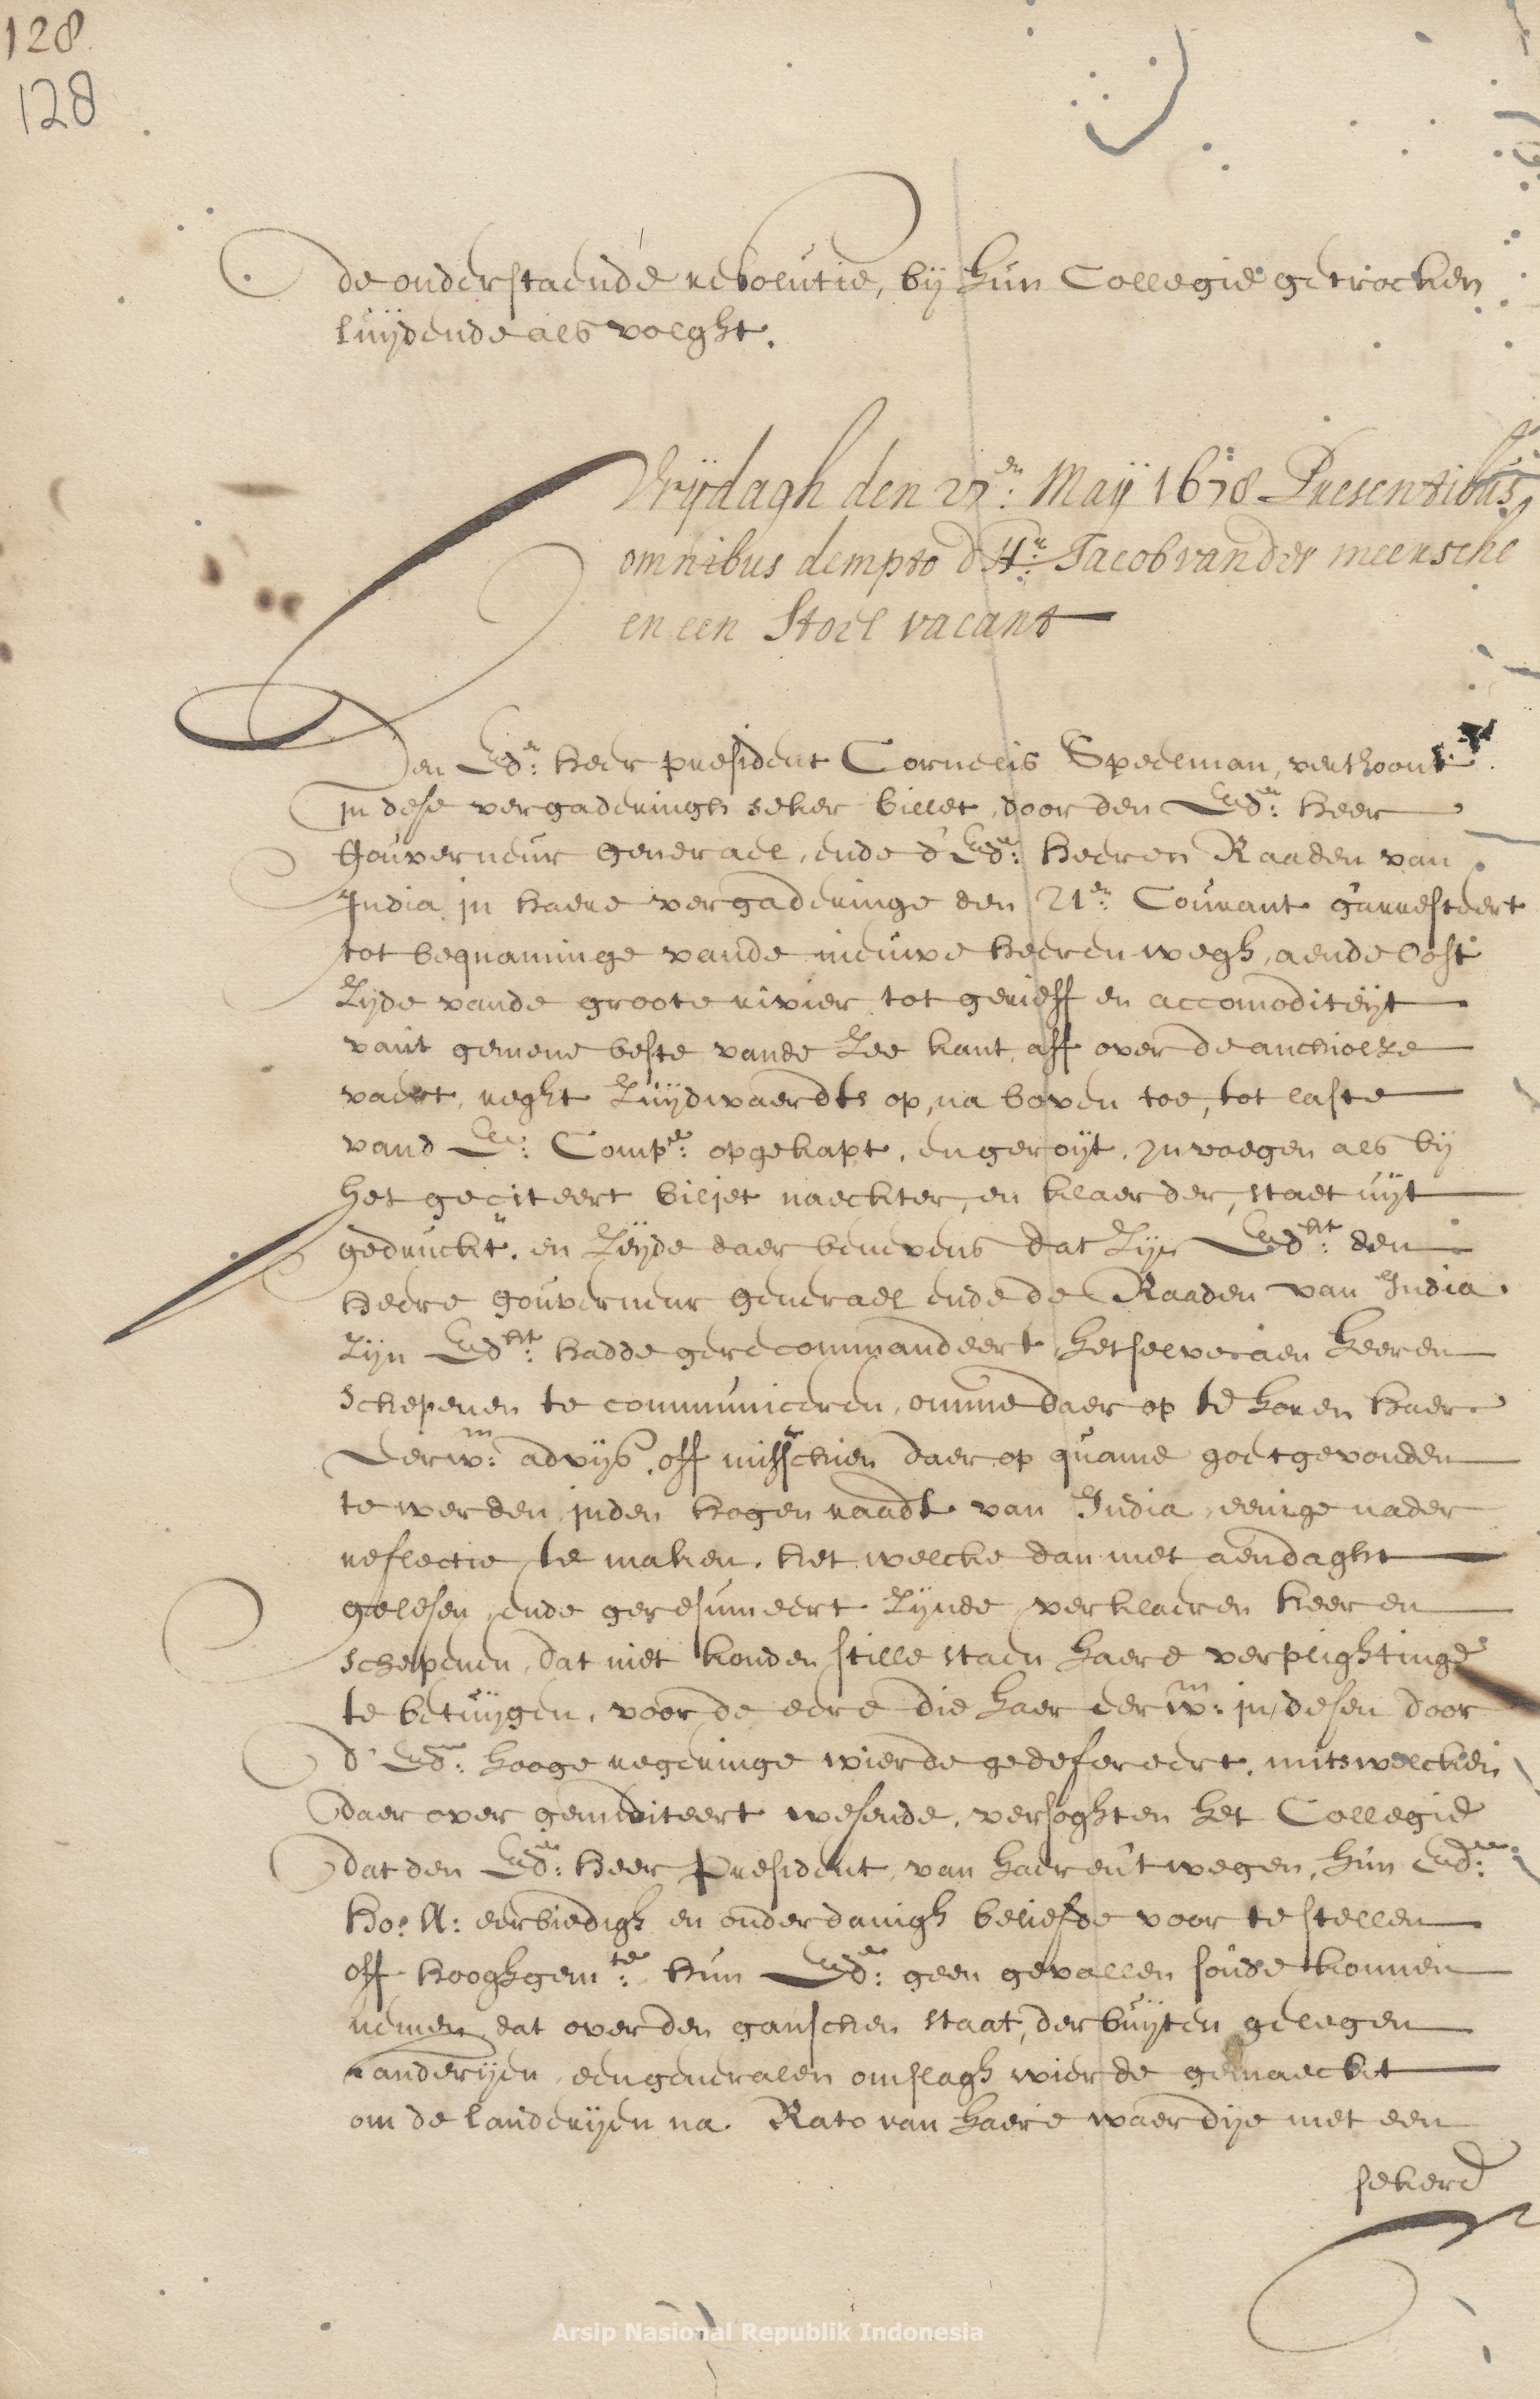 128
128
de onderstaende resolutie, bij hun Collegie getrocken
luijdende als volght.
Vrijdagh den 27en: Maij 1678 Presentibus
omnibus dempto d Hr: Jacob van der meersche
en een Stoel vacant
Den Ed:en heer president Cornelis Speelman, verthoont
in dese vergaderingh seker billet, door den Ed:en heer
Gouverneur generael, ende d'Ed:en heeren Raaden van
India in haere vergaderinge den 21en: Courant g'arresteert
tot bequaminge vande nieuwe heeren wegh, aende Oost
Zijde vande groote rivier tot gerieff en accomoditeijt
vant gemene beste vande Zee kant, aff over de anchiolse
vaert, reght Zuijdwaerdts op, na boven toe, tot laste
vand E: Comp:e opgekapt, en geroijt, in voegen als bij
het geciteert biljet naeckter, en klaerder, staet uijt
gedruckt, en Zeijde daer benevens dat Zijn Ed:ht den
heere gouverneur generael ende de Raaden van India
Zijn Ed:ht hadde gerecommandeert hetselve aen heeren
schepenen te communiceren, omme daer op te horen haer
eerw:n advijs, off misschien daer op quame goetgevonden
te werden, inden hogen raadt van India eenige nader
reflectie te maken. het welcke dan met aendaght
gelesen, ende geresumeert Zijnde verklaeren heeren
schepenen, dat niet konden stille staen haere verplightinge
te betuijgen, voor de eere die haer eerw:n in desen door
d' Ed:e hooge regeringe wierde gedefereert, mitswelcken
daer over gemediteert wesende, versoghten het Collegie
dat den Ed:en heer President, van haerent wegen, hun Ed:ens
Ho: A: eerbiedigh en onderdanigh beliefde voor te stellen
off hooghgem:te hun Ed:e geen gevallen soude konnen
nemen, dat over den ganschen staat, der buijten gelegen
Landerijen, een generalen omslagh wierde gemaeckt
om de landerijen na Rato van haere waerdije met een
sekere
Arsip Nasional Republik Indonesia